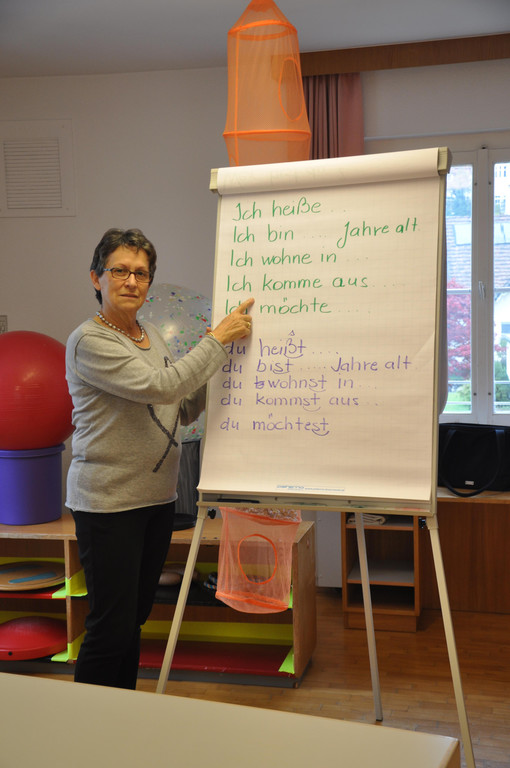 Ich heiße ...
Ich bin .... Jahre alt
Ich wohne in ...
Ich komme aus ....
Ich möchte .....
du heißt ....
du bist ..... Jahre alt
du wohnst in ...
du kommst aus ...
du möchtest